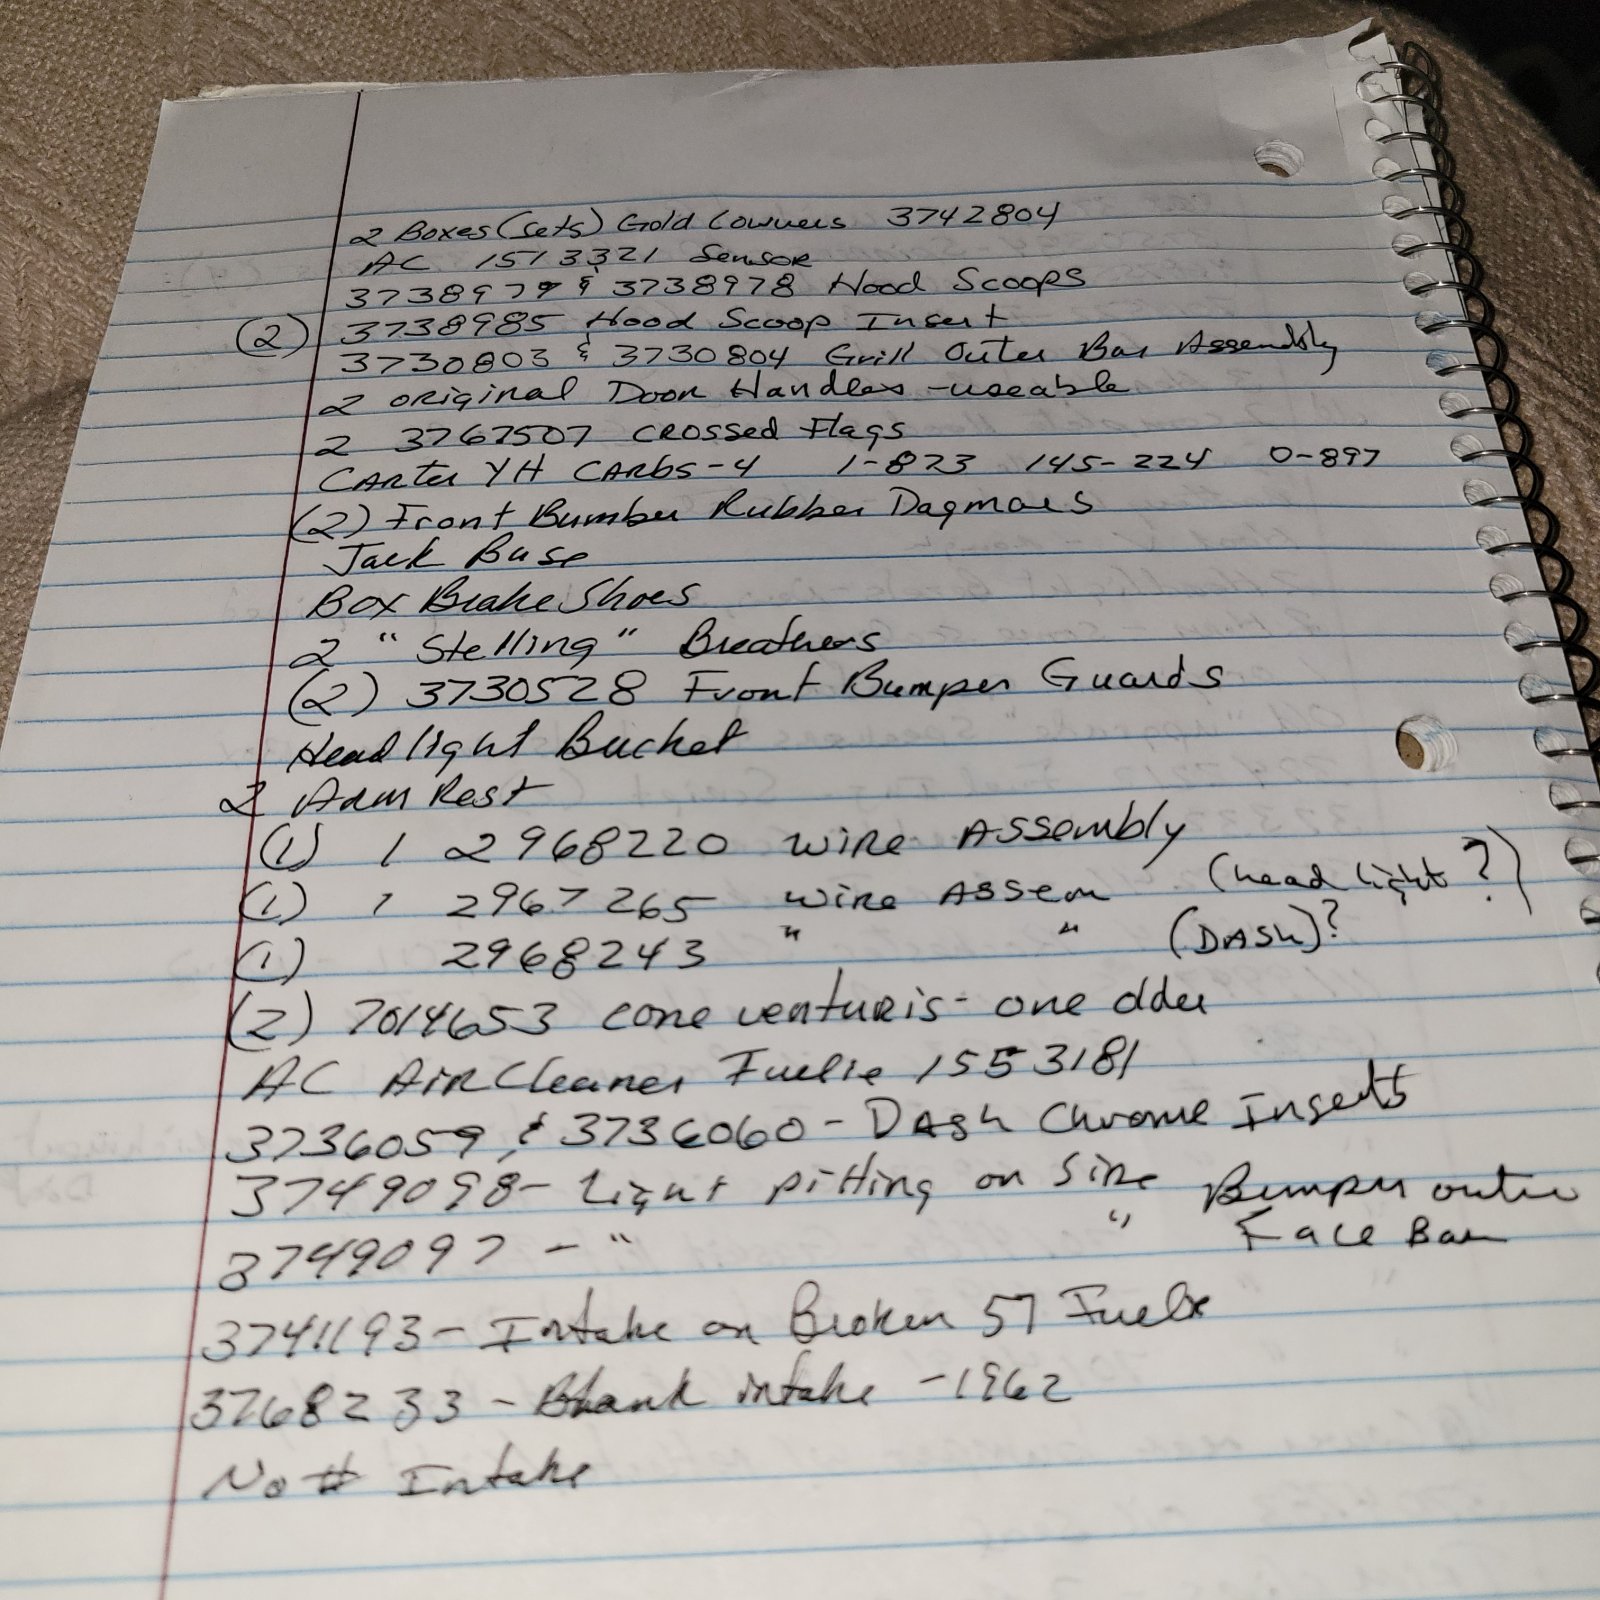 2 Boxes (sets) Gold Lowuers 3742804
AC 1513321 Sensor
3738979 & 3738978 Hood Scoops
(2) 3738985 Hood Scoop Insert
3730803 & 3730804 Grill Outer Bar Assembly
2 original Door Handles - useable
2 3767507 CROSSED Flags
CARter YH CARbs - 4 1-823 145-224 0-897
(2) Front Bumber Rubber Dagmars
Jack Base
Box Brake Shoes
2 "Stelling" Breathers
(2) 3730528 Front Bumper Guards
Headlight Bucket
2 Arm Rest
(1) 1 2968220 wire Assembly
(1) 1 2967265 wire Assem (head light?)
(1) 2968243 " " (DASH)?
(2) 7014653 cone venturis - one older
AC Air Cleaner Fuelie 1553181
3736059 & 3736060 - Dash Chrome Inserts
3749098 - Light pitting on Bumper outer
3749097 - " " Face Bar
3741193 - Intake on Broken 57 Fuelie
3768233 - Blank intake - 1962
No # Intake